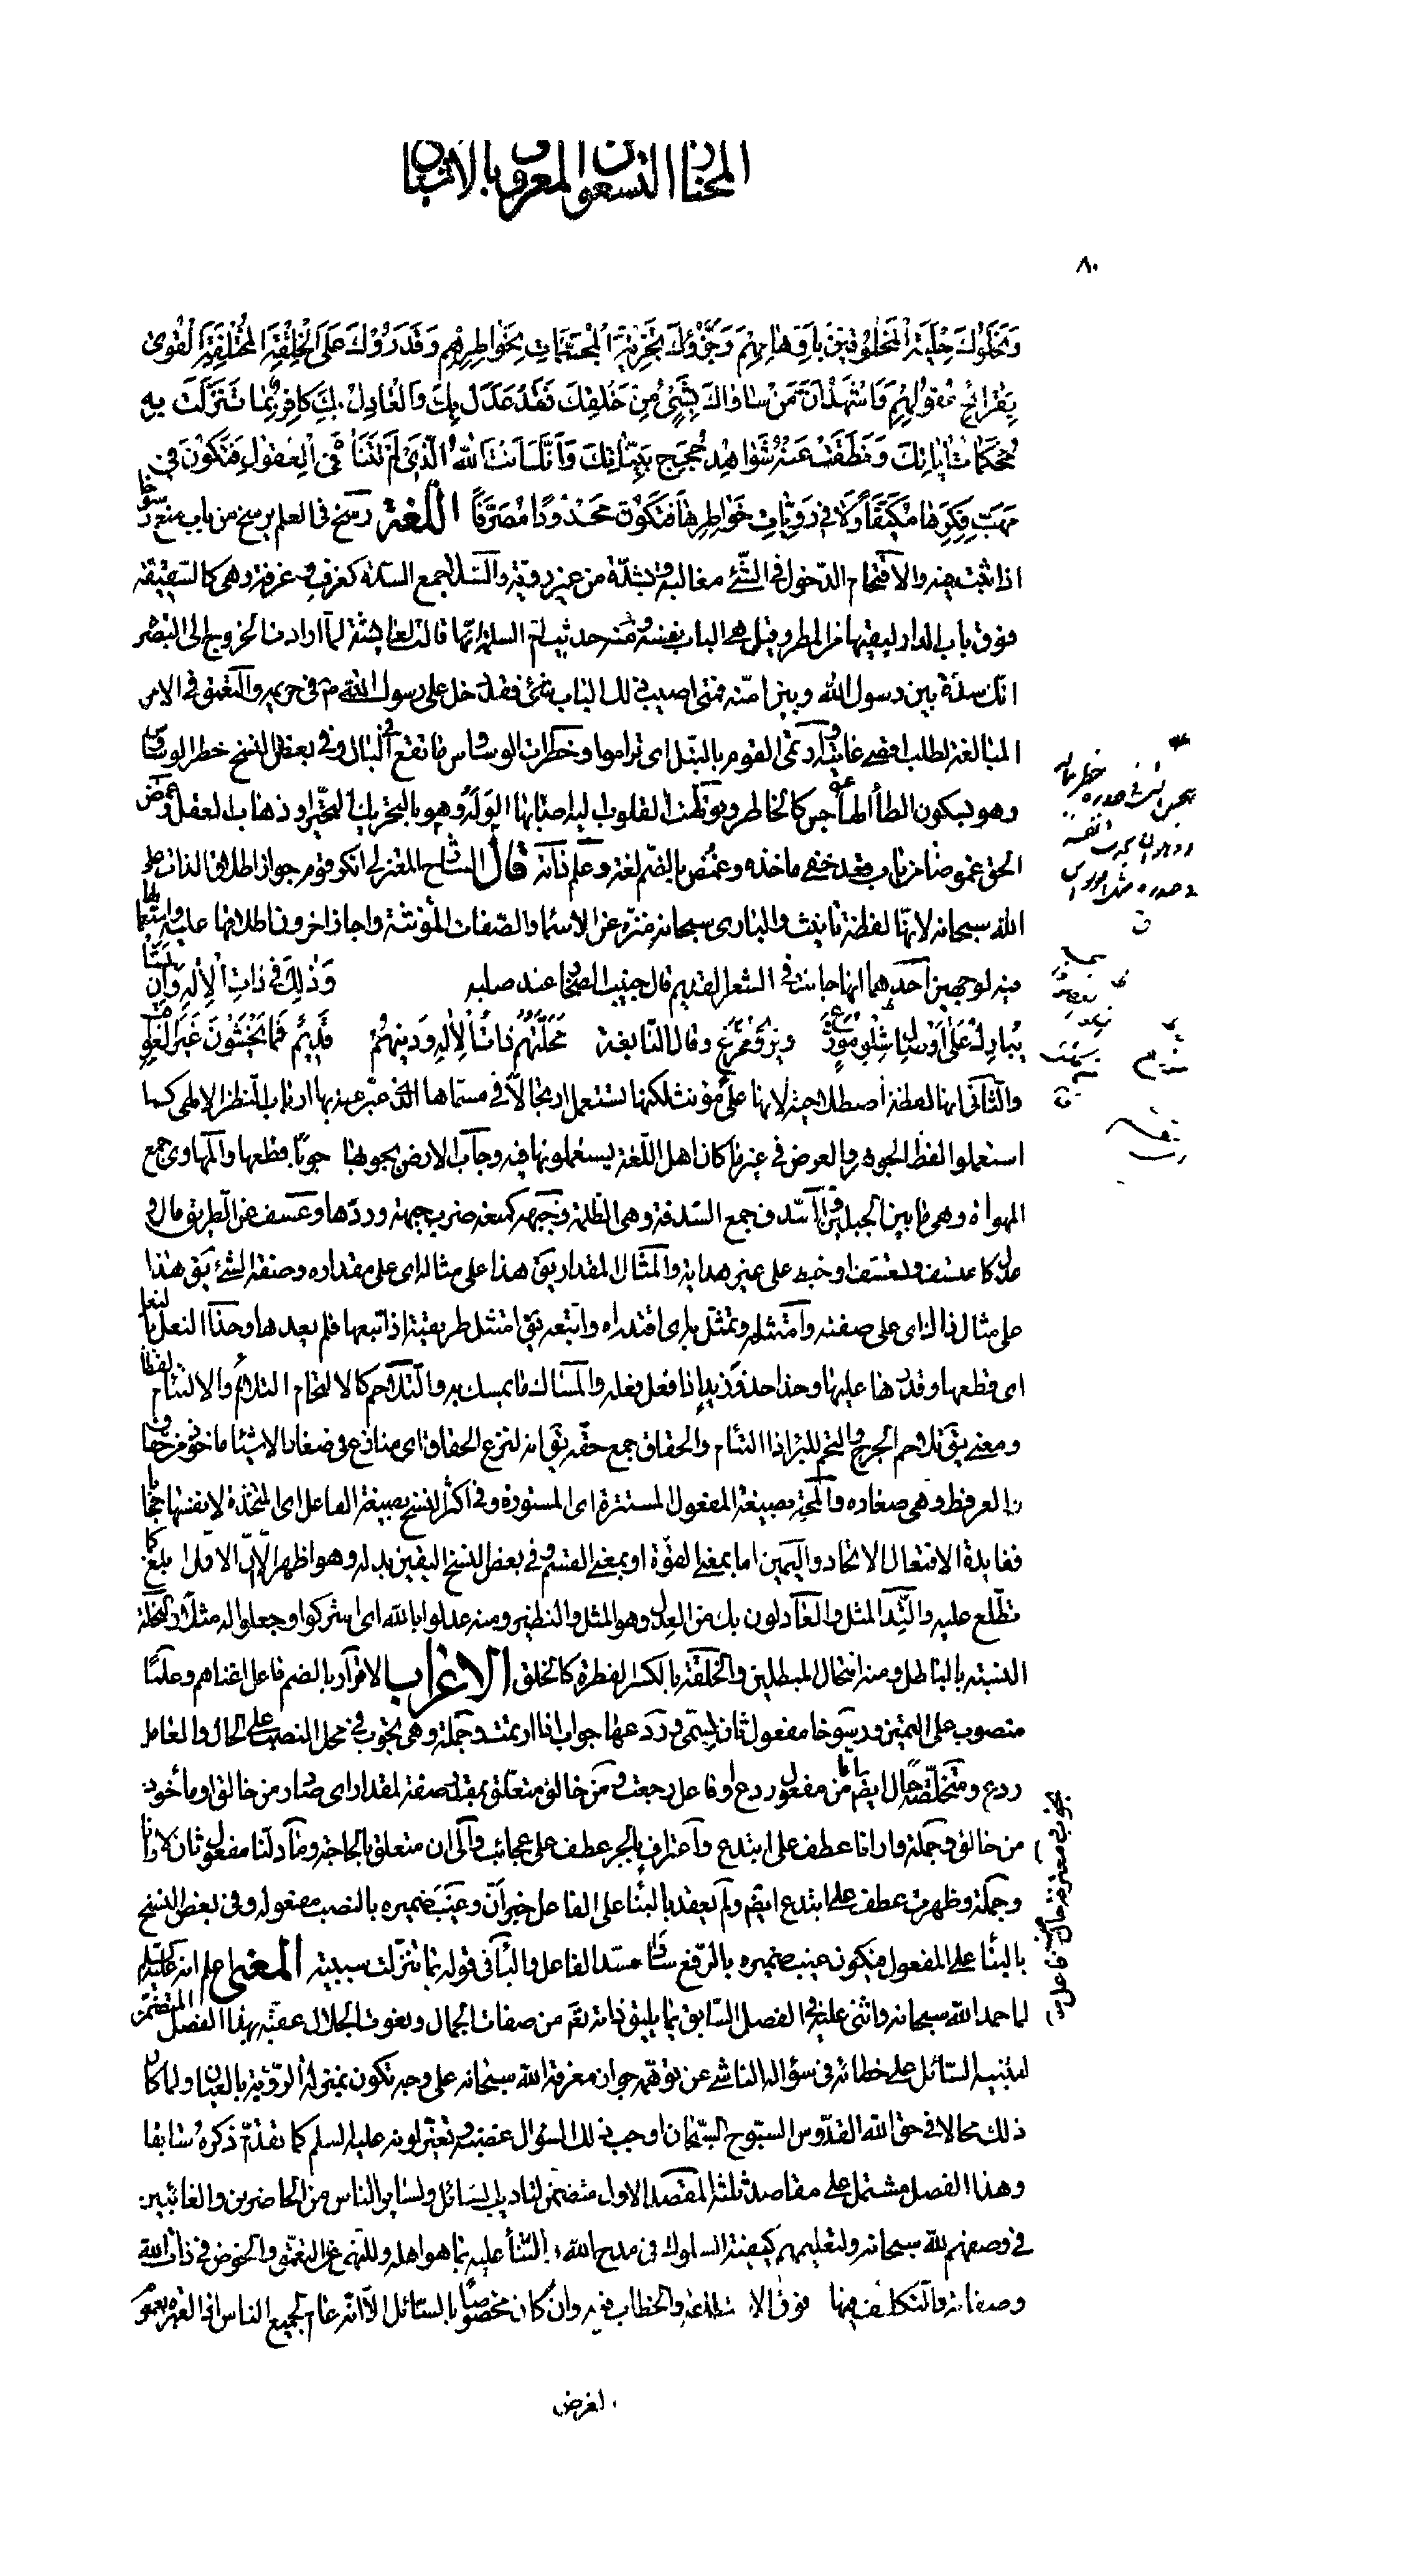 المختار التسعون المعروف بالأشباح
٨٠
وَنَحَلُوكَ حِلْيَةَ الْمَخْلُوقِينَ بِأَوْهَامِهِمْ وَجَزَّؤُكَ تَجْزِئَةَ الْمُجَسَّمَاتِ بِخَوَاطِرِهِمْ وَقَدَّرُوكَ عَلَى الْخِلْقَةِ الْمُخْتَلِفَةِ الْقُوىٰ
بِقَرَائِحِ عُقُولِهِمْ فَاَشْهَدُ اَنَّ مَنْ سَاوَاكَ بِشَيْءٍ مِنْ خَلْقِكَ فَقَدْ عَدَلَ بِكَ وَالْعَادِلُ بِكَ كَافِرٌ بِمَا تَنَزَّلَتْ بِهِ
مُحْكَمَاتُ اٰيَاتِكَ وَنَطَقَتْ عَنْهُ شَوَاهِدُ حُجَجِ بَيِّنَاتِكَ وَاَنَّكَ اَنْتَ اللّٰهُ الَّذِي لَمْ تَتَنَاهَ فِي الْعُقُولِ فَتَكُونَ فِي
مَهَبِّ فِكْرِهَا مُكَيَّفًا وَلَا فِي رَوِيَّاتِ خَوَاطِرِهَا فَتَكُونَ مَحْدُودًا مُصَرَّفًا اللغة رسخ في العلم يرسخ من باب منع رسوخا
اذا ثبت فيه والاقتحام الدخول في الشئ مغالبة وبشدّة من غير رويّة والسّدد جمع السدّة كغرف وغرفة وهي كالسقيفة
فوق باب الدار ليقيها من المطر وقيل هي الباب نفسه ومنه حديث ام السلمة انّها قالت لعايشة لمّا ارادت الخروج الى البصرة
انّك سدّة بين رسول الله وبين امّته فمتى اصيب ذلك الباب بشئ فقد دخل على رسول الله ص في حريمه والتعمّق في الامر
المبالغة لطلب اقصى غايته وارتمى القوم بالنبل اى تراموا وخطرات الوساوس ما تقع في البال وفي بعض النسخ خطر الوساوس
وهو بسكون الطاء الهاجس كالخاطر وتولّهت القلوب اليه اصابها الوله وهو بالتحريك التحيّر او ذهاب العقل وغمض
الحق غموضا من باب قعد خفى ماخذه وغمض بالضم لغة وعلم ذاته قال الشارح المعتزلي انكر قوم جواز اطلاق الذات على
الله سبحانه لانّها لفظة تأنيث والبارى سبحانه منزّه عن الاسماء والصّفات المؤنثة واجاز اخرون اطلاقها عليه واستعمالها
فيه لوجهين احدهما انها جائت في الشعر القديم قال خبيب الصحابي عند صلبه وَذٰلِكَ فِي ذَاتِ الْاِلٰهِ وَاِنْ يَشَأْ
يُبَارِكْ عَلٰى اَوْصَالِ شِلْوٍ مُوَزَّعٍ ويروى ممزّع وقال النّابغة مَحَلَّتُهُمْ ذَاتُ الْاِلٰهِ وَدِينُهُمْ قَدِيمٌ فَمَا يَخْشَوْنَ غَيْرَ الْعَوَاقِبِ
والثاني انها لفظة اصطلاحية لانها على مؤنث لكنها تستعمل ارتجالا في مسمّاها الذى عبر عنه بها ارباب النظر الالهى كما
استعملوا لفظ الجوهر والعرض في غير ما كان اهل اللّغة يستعملونها فيه وجاب الارض يجوبها جوبا قطعها والمهاوى جمع
المهواة وهى ما بين الجبلين والسّدف جمع السّدفة وهى الظلمة وجبهه كمنعه ضرب جبهته وردّها وعسف عن الطريق مال و
عدل كاعتسف وتعسّف او خبطه على غير هداية والمثال المقدار يق هذا على مثاله اى على مقداره وصفة الشئ يق هذا
على مثال ذاك اى على صفته وامتثله وتمثّل به اى اقتداه واتّبعه يق امتثل طريقته اذا تبعها فلم يعدها وحذا النعل بالنعل
اى قطعها وقدّرها عليها وحذا حذو زيد اذا فعل فعله والمساك ما يمسك به والتلاحم كالالتحام التلائم والالتئام لفظا
ومعنى يق تلاحم الجرح والتحم للبرء اذا التئام والحقاق جمع حقّه يق انه لنزع الحقاق اى منازع في صغار الاشياء ماخوذ من حقاق
العرفط وهى صغاره والمحتجبة بصيغة المفعول المستترة اى المستورة وفي اكثر النسخ بصيغة الفاعل اى المتّخذة لانفسها حجابا
ففايدة الافتعال الاتخاد واليمين اما بمعنى القوّة او بمعنى القسم وفي بعض النسخ اليقين بدله وهو اظهر الّا انّ الاوّل ابلغ كما
تطّلع عليه والنّد المثل والعادلون بك من العدل وهو المثل والنظير ومنه عدلوا بالله اى اشركوا وجعلوا له مثلا والنحلة
النسبة بالباطل ومنه انتحال المبطلين والخلقة بالكسر الفطرة كالخلق الاعراب الاقرار بالضم فاعل اغناهم وعلما
منصوب على التميز ورسوخا مفعول ثان لسمّى وردعها جواب اذا ارتمت وجملة وهى تجوب في محل النصب على الحال والعامل
ردع ومتخلّصة حال ايضا من مفعول ردع او فاعل رجعت ومن خالق متعلق بمقدّر صفة لمقدار اى صادر من خالق او مأخوذ
من خالق وجملة وارانا عطف على ابتدع واعتراف بالجر عطف على عجائب والى ان متعلق بالحاجة وما دلّنا مفعول ثان لارانا
وجملة وظهرت عطف على ابتدع ايضا ولم يعقد بالبناء على الفاعل خبر انّ وغيب ضميره بالنصب مفعوله وفي بعض النسخ
بالبناء على المفعول فيكون غيب ضميره بالرّفع سادّا مسدّ الفاعل والباء في قوله بما تنزّلت سببية المعنى اعلم انه عليه السلام
لما حمد الله سبحانه واثنى عليه في الفصل السّابق بما يليق ذاته تعالى من صفات الجمال ونعوت الجلال عقّبه بهذا الفصل المتضمّن
لتنبيه السّائل على خطائه في سؤاله الناشى عن توهّمه جواز معرفة الله سبحانه على وجه تكون بمنزلة الرؤية بالعيان ولما كان
ذلك محالا في حق الله القدّوس السبّوح السّبحان اوجب ذلك السؤال غضبه وتغيّر لونه عليه السلم كما تقدّم ذكره سابقا
وهذا الفصل مشتمل على مقاصد ثلثة المقصد الاول متضمّن لتاديب السائل ولساير الناس من الحاضرين والغائبين
في وصفهم لله سبحانه ولتعليمهم كيفية السلوك في مدح الله والثناء عليه بما هو اهله وللنهى عن التعمّق والخوض في ذات الله
وصفاته والتكلّف فيها فوق الاستطاعة والخطاب فيه وان كان مخصوصا بالسّائل الّا انّه عام لجميع الناس
لغرض